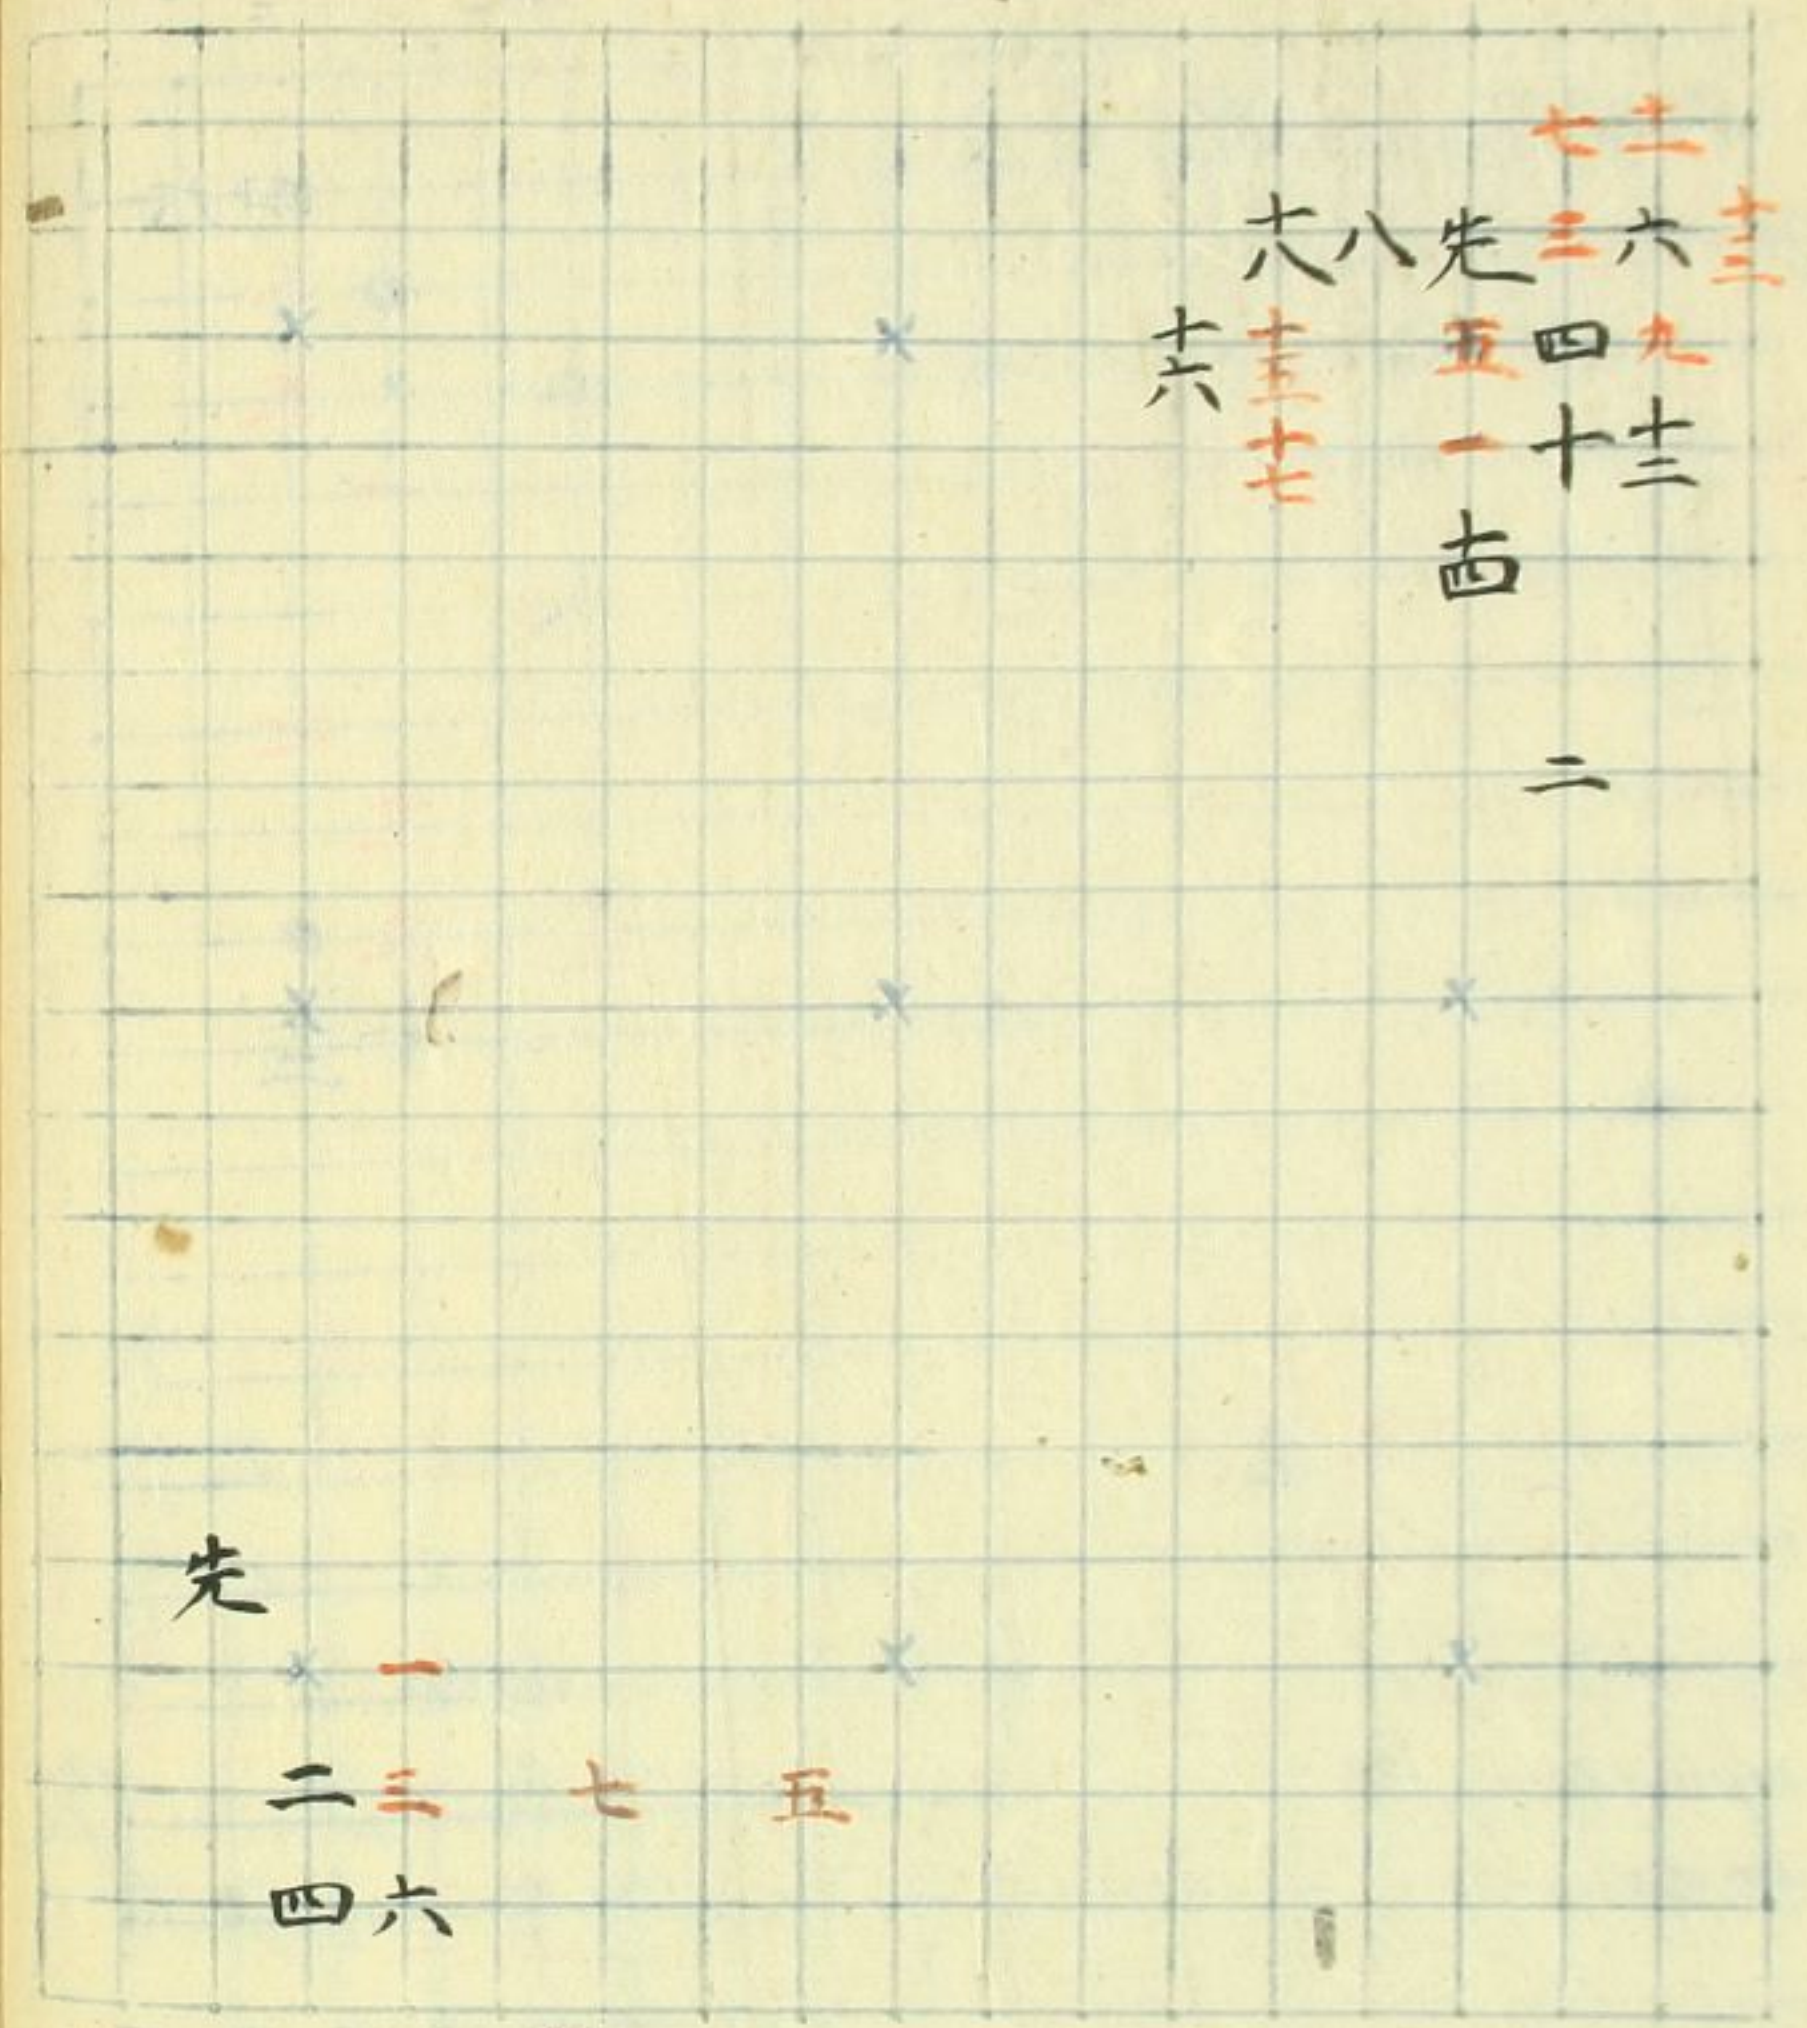 七 十一
十八 八 先 三 六 十三
十六 十五 五 四 九
十七 一 十 十二
十四
二
先
一
二 三 七 五
四 六